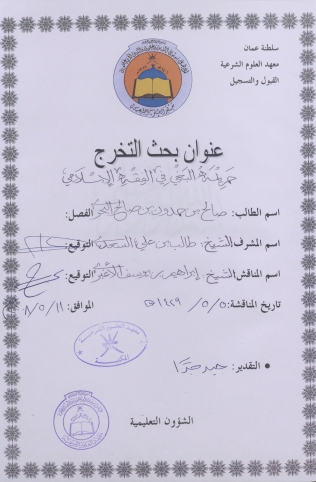 سلطنة عمان
معهد العلوم الشرعية
القبول والتسجيل
عنوان بحث التخرج
في الفقه الإسلامي
اسم الطالب: صالح بن حمدون بن صالح الفصل:
اسم المشرف الشيخ: طالب بن علي السعدي التوقيع:
اسم المناقش الشيخ: إبراهيم بن يوسف الأغبري التوقيع:
تاريخ المناقشة: ٥/٥/١٤٢٩ هـ الموافق: ١١/٥/٨
• التقدير: جيد جدا
الشؤون التعليمية